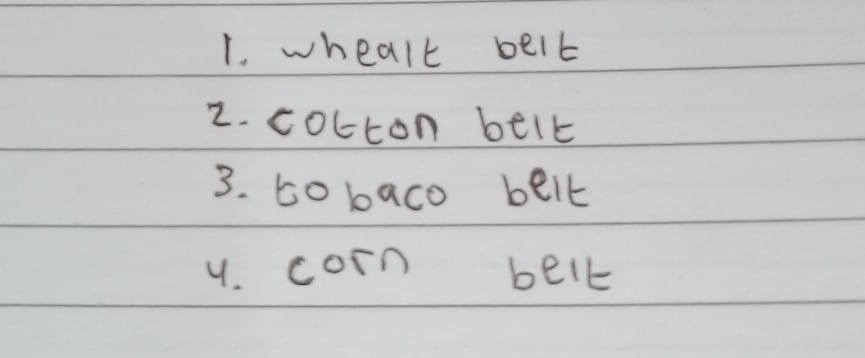 1. whealt belt
2. cotton belt
3. tobaco belt
4. corn belt